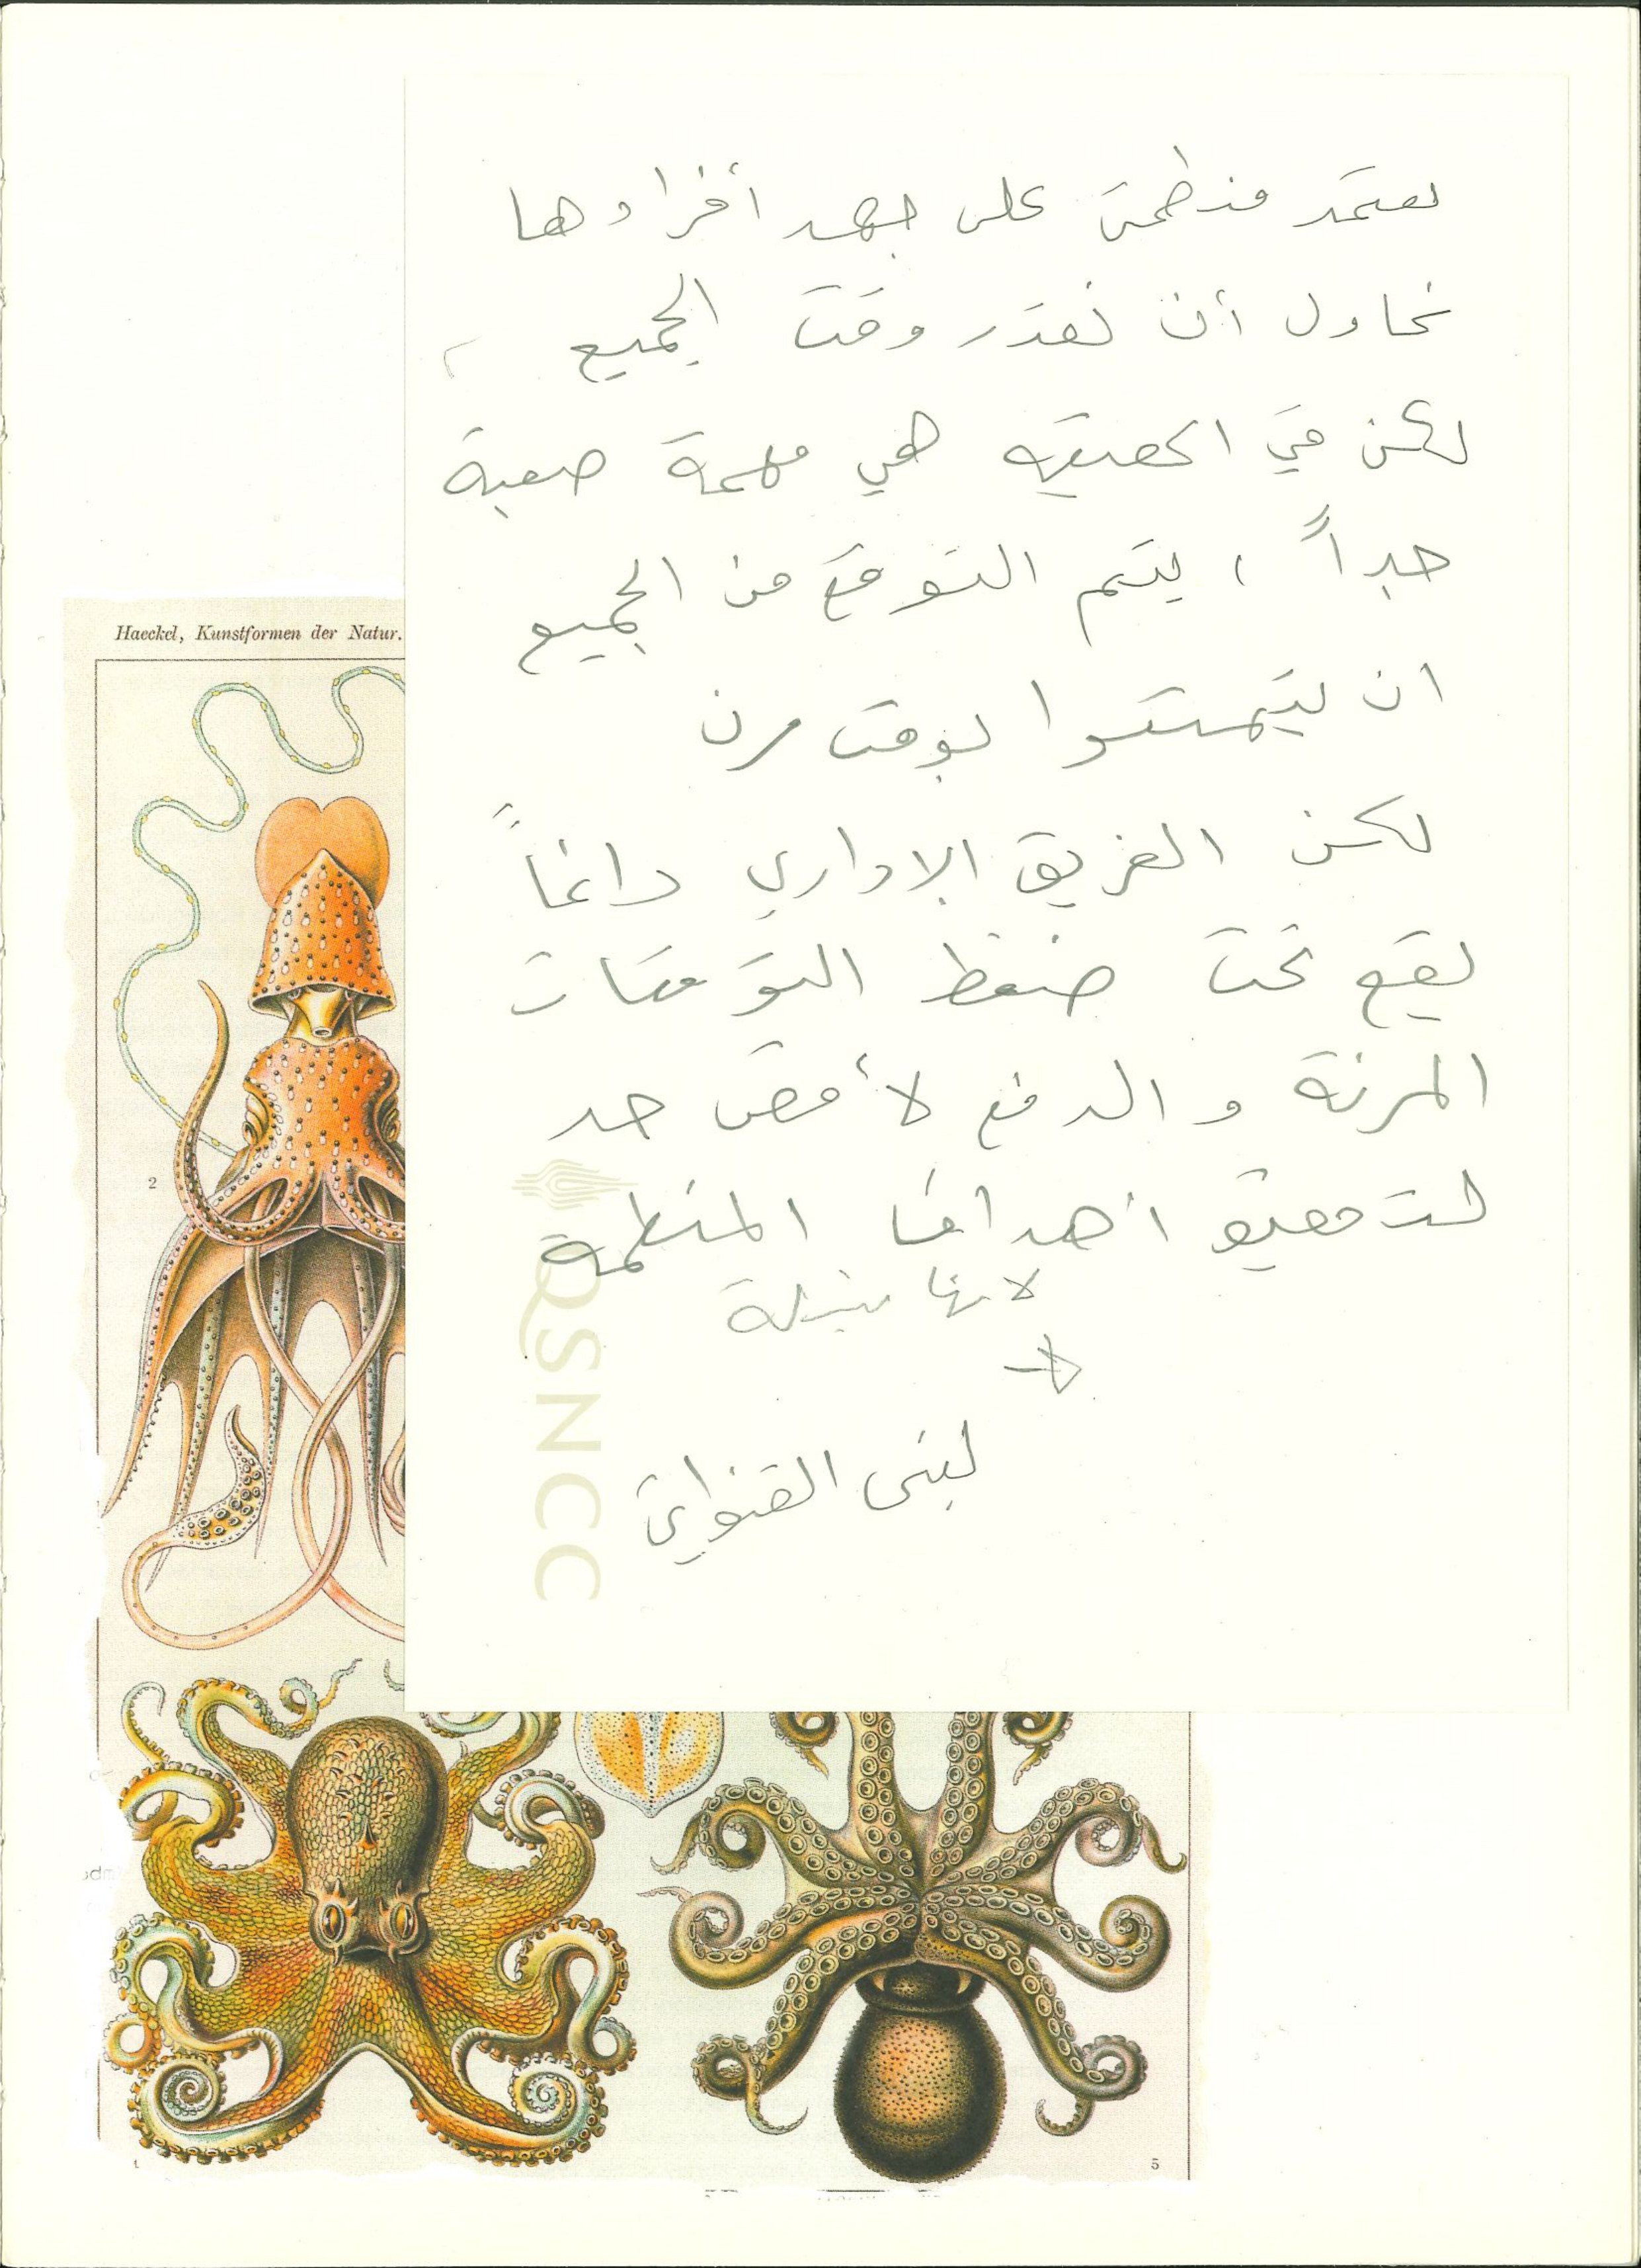 تعتمد منظمتي على جهد أفرادها
نحاول أن نقدر وقت الجميع ،
لكن في الحقيقة هي مهمة صعبة
جداً ، يتم التوقع من الجميع
ان يتمتعوا بوقت مرن
لكن الفريق الاداري دائماً
يقع تحت ضغط التوقعات
المرنة و الدفع لأقصى حد
لتحقيق أهداف المنظمة
لانها نبيلة
لبنى القنواتي
Haeckel, Kunstformen der Natur.
2
QSNCC
4
5